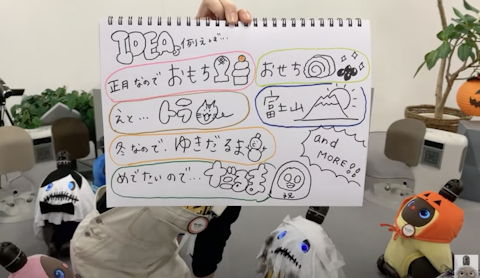 IDEA、例えば…
正月なので おもち
おせち
えと… トラ
富士山
冬なので、ゆきだるま
and MORE!!
めでたいので… だるま
祝